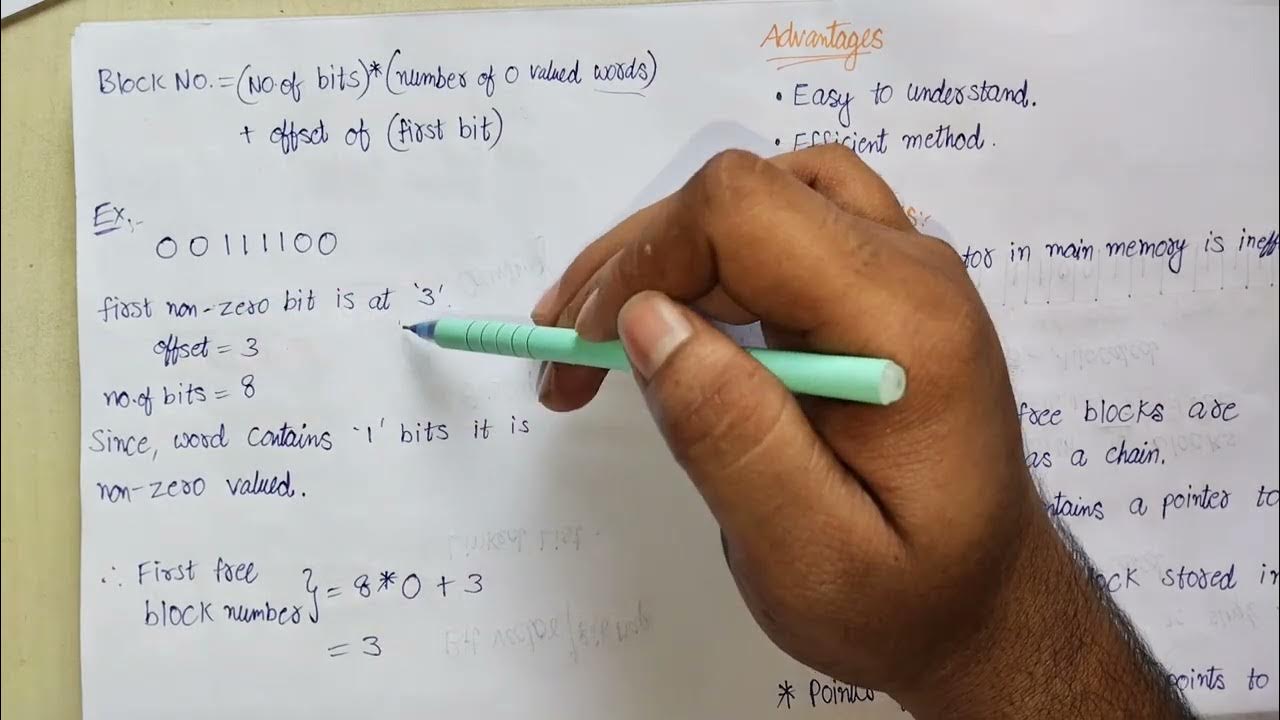 Block No. = (No. of bits) * (number of 0 valued words)
+ offset of (first bit)
Ex:-
00111100
first non-zero bit is at '3'.
offset = 3
no. of bits = 8
Since, word contains '1' bits it is
non-zero valued.
∴ First free
block number } = 8 * 0 + 3
= 3
Advantages
• Easy to understand.
• Efficient method.
in main memory is
free blocks are
as a chain.
a pointer to
stored in
points to